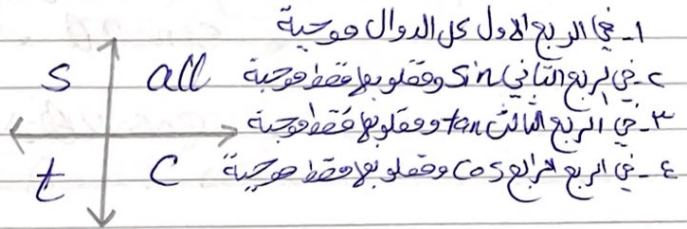 ١- في الربع الاول كل الدوال موجبة
s all ٢- في الربع الثاني sin ومقلوبها فقط موجبة
٣- في الربع الثالث tan ومقلوبها فقط موجبة
t c ٤- في الربع الرابع cos ومقلوبها فقط موجبة